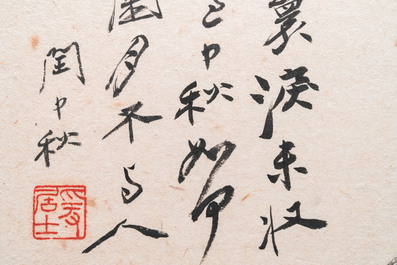 裏淚未收
中秋如何
圓月不與人
閏中秋
居士